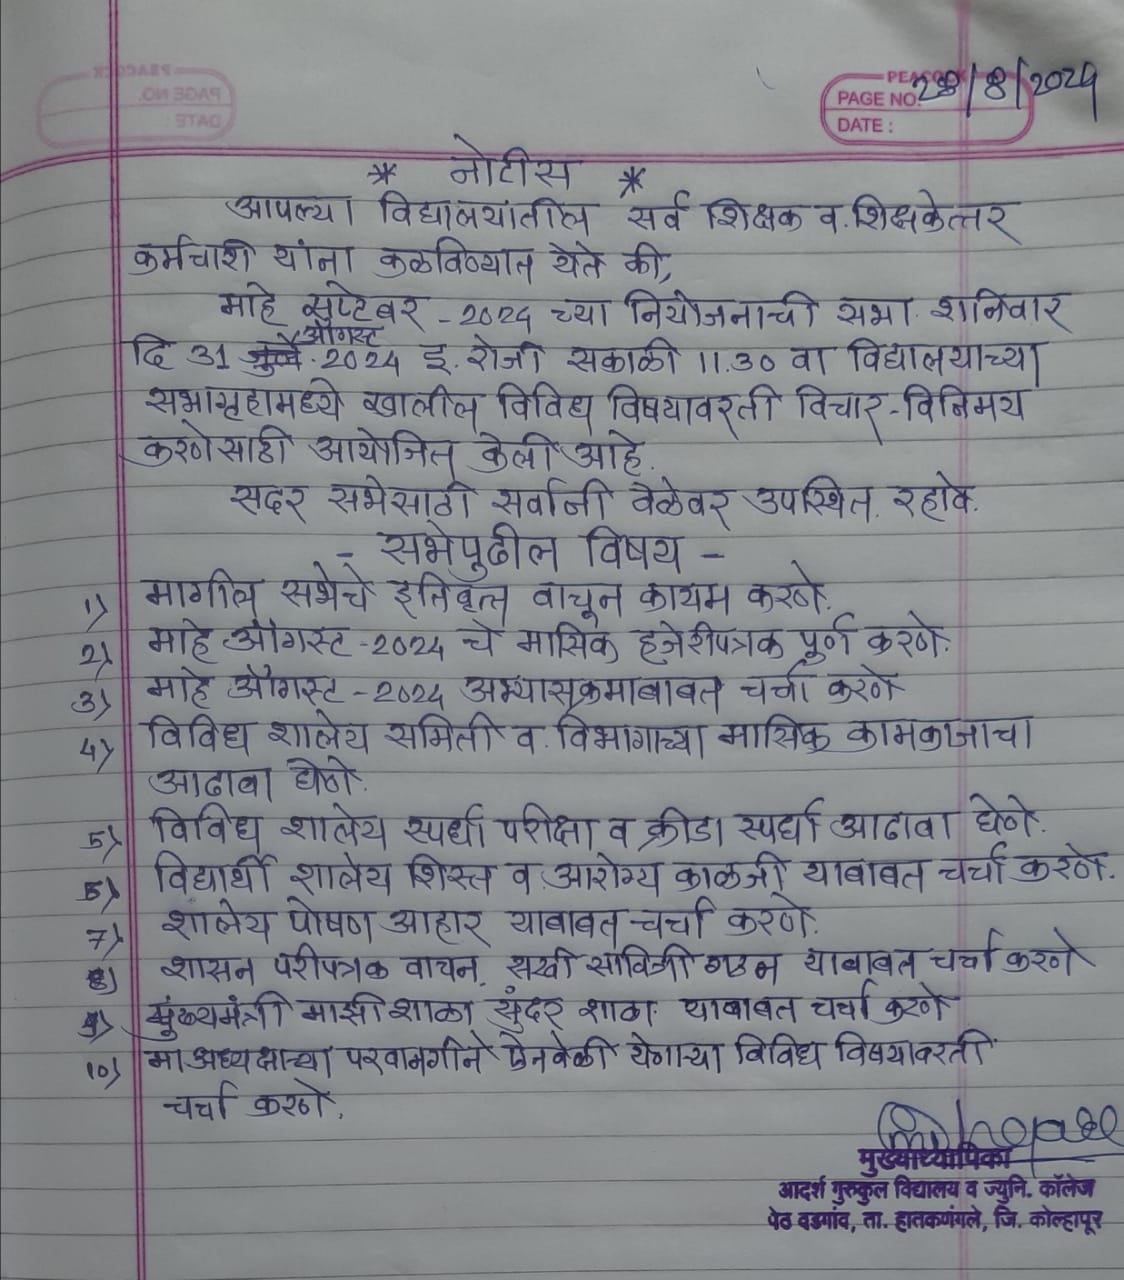 PEACOCK
PAGE NO.
DATE :
28/8/2024
* नोटीस *
आपल्या विद्यालयातील सर्व शिक्षक व शिक्षकेत्तर
कर्मचारी यांना कळविण्यात येते की,
माहे सप्टेंबर - 2024 च्या नियोजनाची सभा शनिवार
दि 31 ऑगस्ट 2024 इ. रोजी सकाळी 11.30 वा विद्यालयाच्या
सभागृहामध्ये खालील विविध विषयावरती विचार-विनिमय
करणेसाठी आयोजित केली आहे.
सदर सभेसाठी सर्वांनी वेळेवर उपस्थित रहावे.
- सभेपुढील विषय -
1) मागील सभेचे इतिवृत्त वाचून कायम करणे.
2) माहे ऑगस्ट - 2024 चे मासिक हजेरीपत्रक पुर्ण करणे.
3) माहे ऑगस्ट - 2024 अभ्यासक्रमाबाबत चर्चा करणे
4) विविध शालेय समिती व विभागाच्या मासिक कामकाजाचा
आढावा घेणे.
5) विविध शालेय स्पर्धा परीक्षा व क्रीडा स्पर्धा आढावा घेणे.
6) विद्यार्थी शालेय शिस्त व आरोग्य काळजी याबाबत चर्चा करणे.
7) शालेय पोषण आहार याबाबत चर्चा करणे.
8) शासन परीपत्रक वाचन, सखी सावित्री गठन याबाबत चर्चा करणे
9) मुख्यमंत्री माझी शाळा सुंदर शाळा याबाबत चर्चा करणे
10) मा अध्यक्षाच्या परवानगीने ऐनवेळी येणाऱ्या विविध विषयावरती
चर्चा करणे.
मुख्याध्यापिका
आदर्श गुरुकुल विद्यालय व ज्युनि. कॉलेज
पेठ वडगांव, ता. हातकणंगले, जि. कोल्हापूर